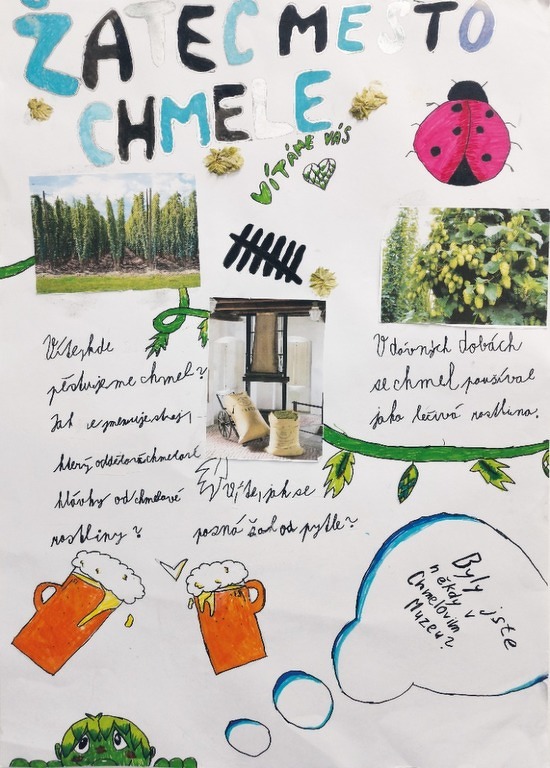 ŽATEC MĚSTO
CHMELE
VÍTÁME VÁS
Víte, kde
pěstujeme chmel?
Jak se jmenuje stroj,
který odděluje chmelové
hlávky od chmelové
rostliny?
Víte, jak se
pozná žok od pytle?
V dávných dobách
se chmel používal
jako léčivá rostlina.
Byly jste
někdy v
Chmelovím
Muzeu?